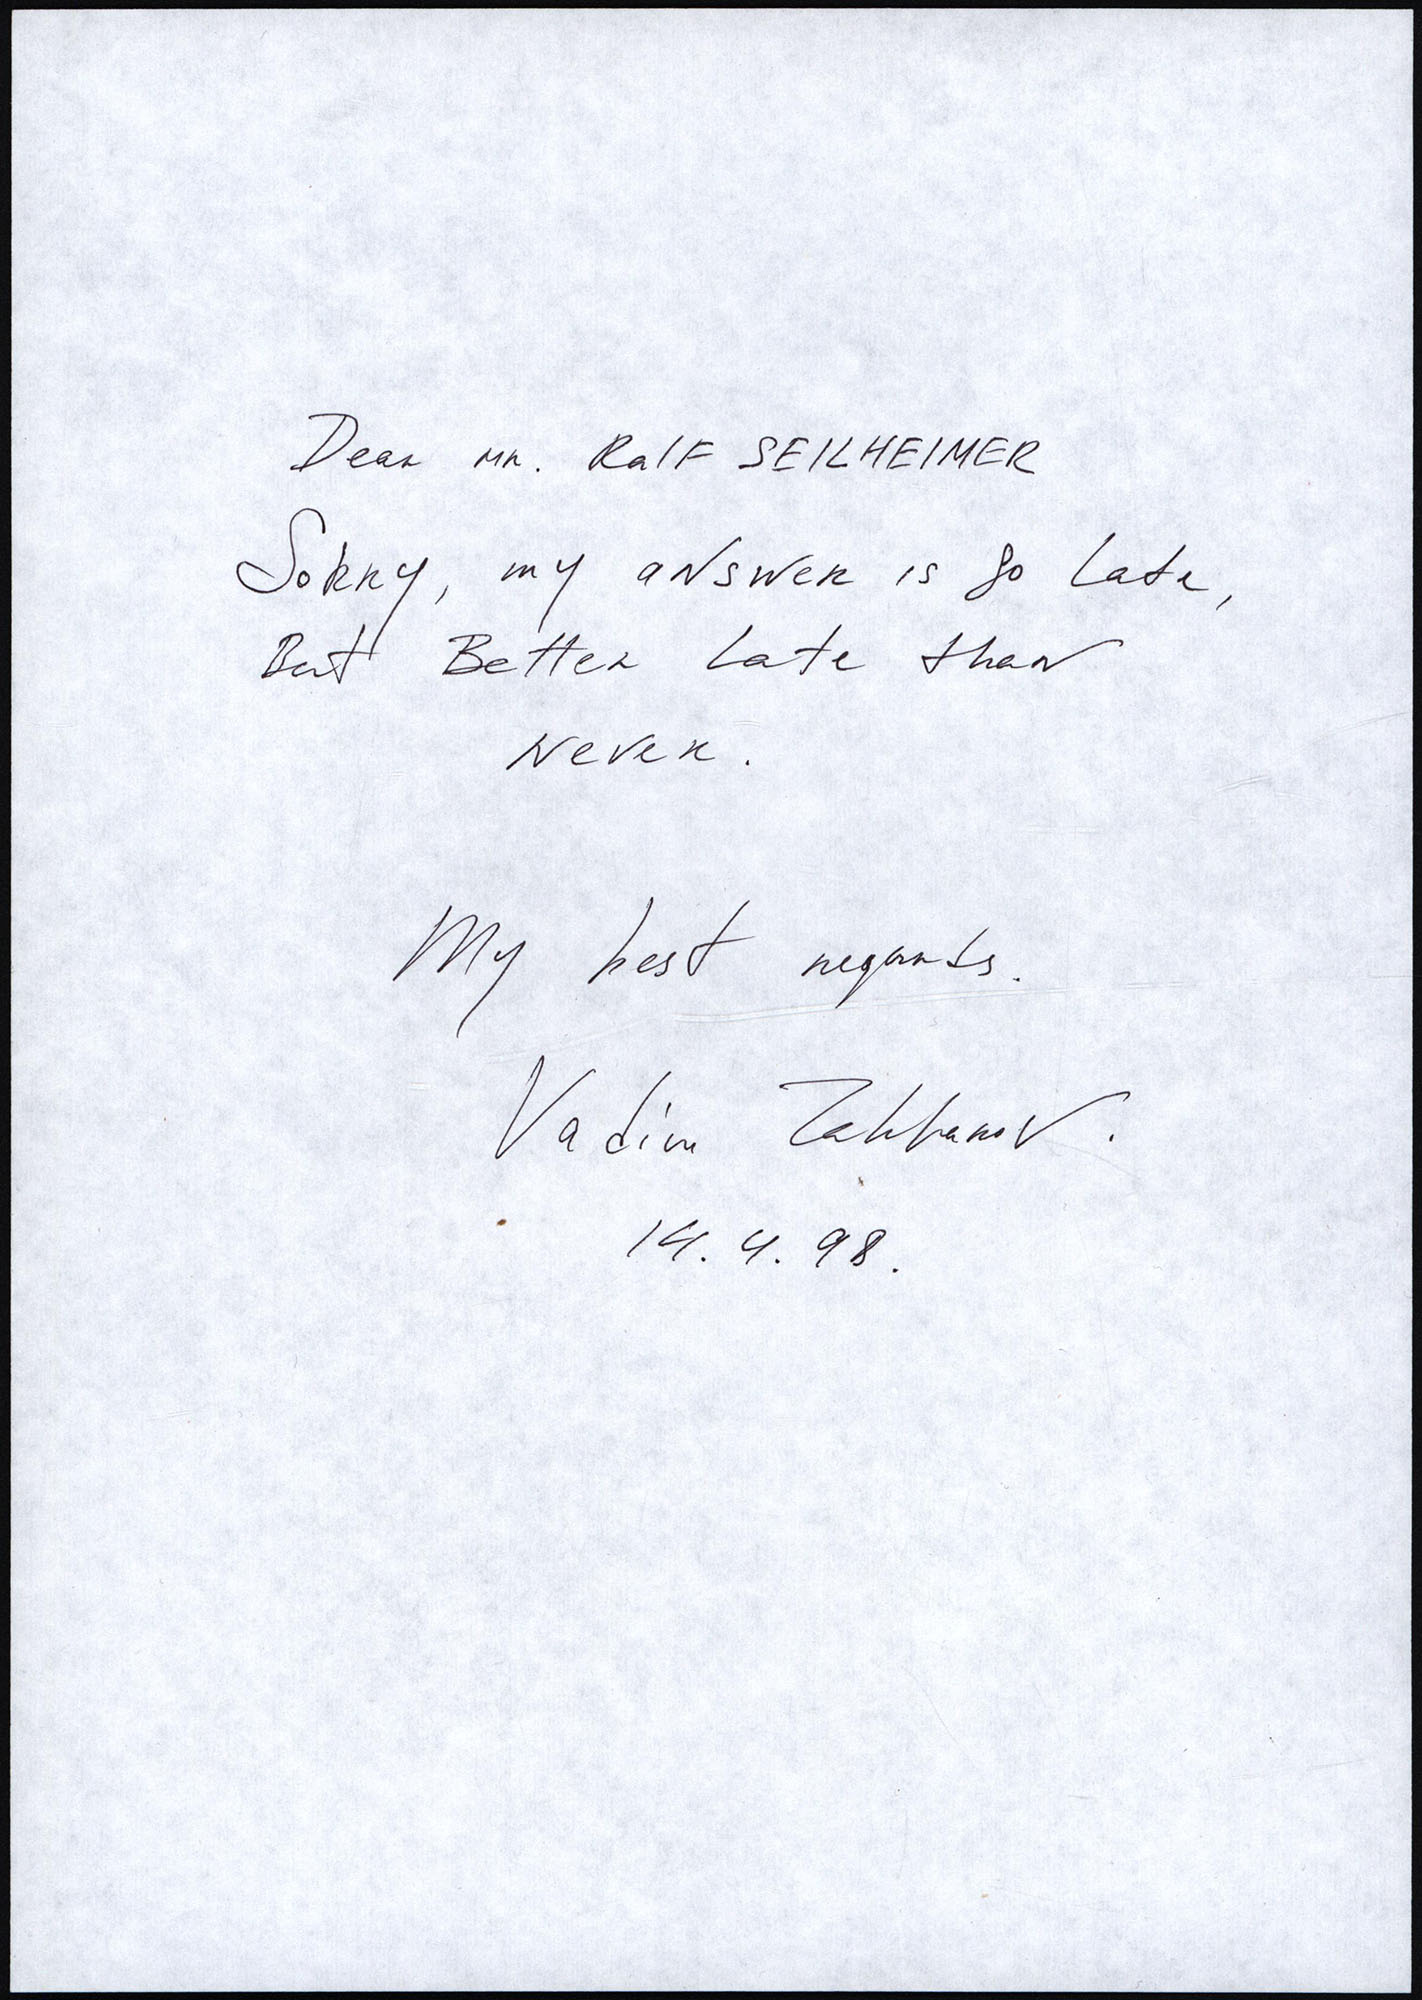 Dear mr. Ralf SEILHEIMER
Sorry, my answer is so late,
But Better late than
never.
My best regards.
Vadim Zakharov.
14.4.98.